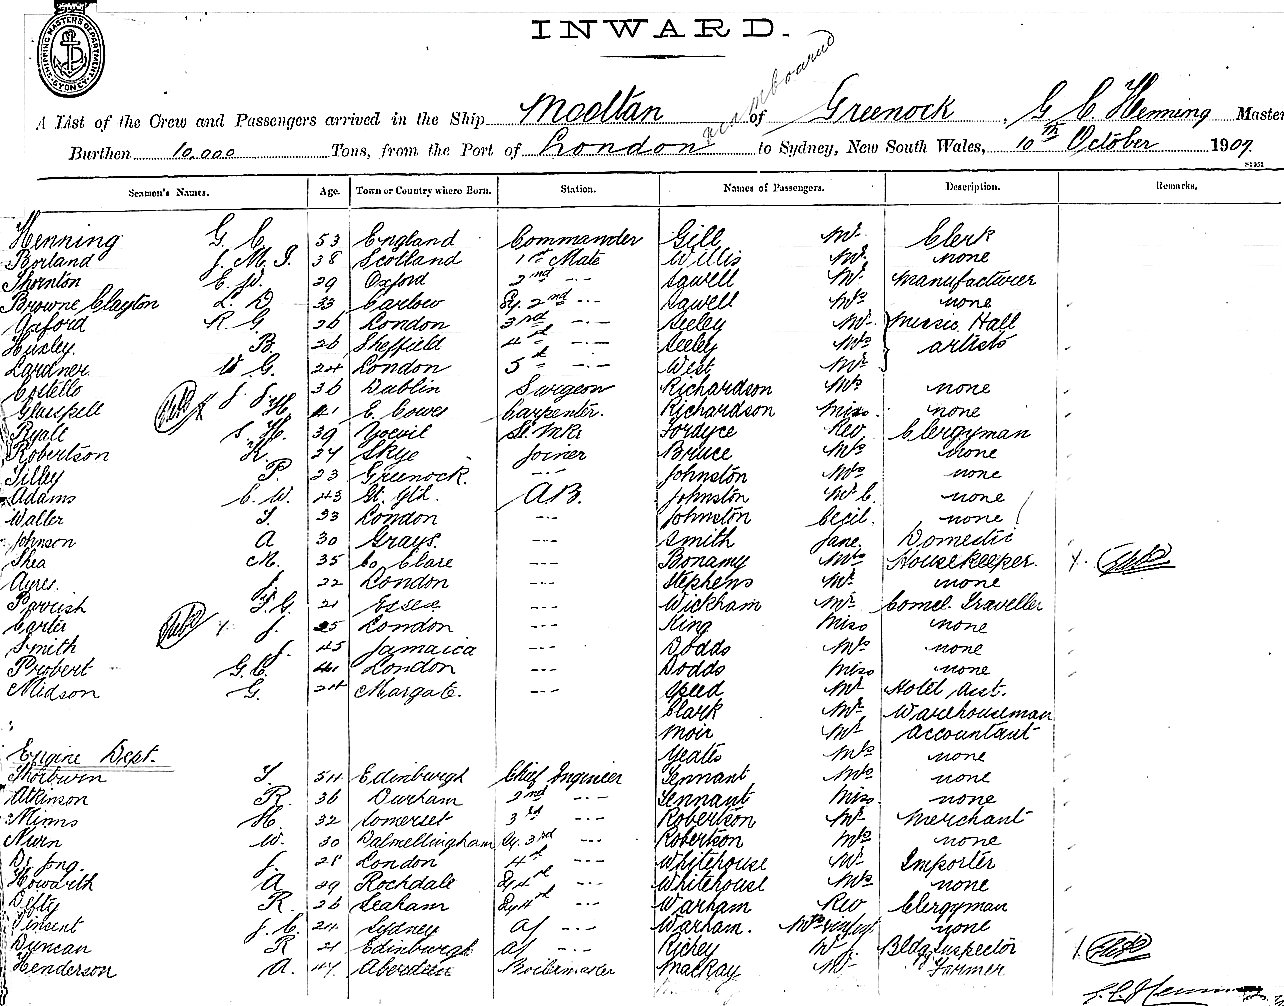 SHIPPING MASTERS DEPARTMENT SYDNEY
INWARD.
A List of the Crew and Passengers arrived in the Ship Mooltan of Greenock, G C Henning Master
Burthen 10,000 Tons, from the Port of London to Sydney, New South Wales, 10th October 1909.
Seamen's Names. Age. Town or Country where Born. Station. Names of Passengers. Description. Remarks.
Henning G. C. 53 England Commander Gill Mr Clerk
Borland J. M. J. 38 Scotland 1st Mate Willis Mr none
Thornton E. W. 29 Oxford 2nd --- Sawell Mr Manufacturer
Browne Clayton L. D 33 Carlow 2nd --- Sawell Mrs none
Oxford R G. 26 London 3rd --- Seeley Mr Music Hall
Huxley B 26 Sheffield 4th --- Seeley Mrs artists
Lardner W G. 24 London 5th --- West Mr
Costello J. J 36 Dublin Surgeon Richardson Mrs none
Glasspell H. 41 E. Cowes Carpenter. Richardson Miss none
Ryall S. H. 39 Yeovil Fordyce Rev Clergyman
Robertson K 27 Skye Joiner Bruce Mrs none
Tilley P. 23 Greenock. --- Johnston Mrs none
Adams C. W. 43 A.B. Johnston none
Waller T. 33 London --- Johnston Cecil. none
Johnson A 30 Grays. --- Smith Jane. Domestic
Shea M. 35 Co Clare --- Bonamy Mrs Housekeeper.
Ayres. J. 22 London --- Stephens Mr none
Parrish F. G. 21 Essex --- Wickham Mr Comcl. Traveller
Carter J. 25 London --- King Miss none
Smith J. 45 Jamaica --- Dodds Mrs none
Probert G. C. 41 London --- Dodds Miss none
Midson G. 24 Margate. --- Speed Mr Hotel Asst.
Clark Mr Warehouseman
Moir Mr Accountant
Engine Dept. Yeates Mrs none
Thorburn T 54 Edinburgh Chief Engineer Tennant Mrs none
Atkinson R. 36 Durham 2nd --- Tennant Miss none
Minns H. 32 Somerset 3rd --- Robertson Mr Merchant
Nurn W. 30 Dalmellingham 3rd --- Robertson Mrs none
De Jong. J. 28 London 4th --- Whitehouse Mr Importer
Howarth A 29 Rochdale 4th --- Whitehouse Mrs none
R. 26 Seaham 4th --- Warham Rev Clergyman
Vincent J. C. 24 Sydney --- Warham. Mrs none
Duncan R 21 Edinburgh --- Richey Bldg Inspector
Henderson A. 47 Aberdeen Boilermaker MacKay Mr Farmer